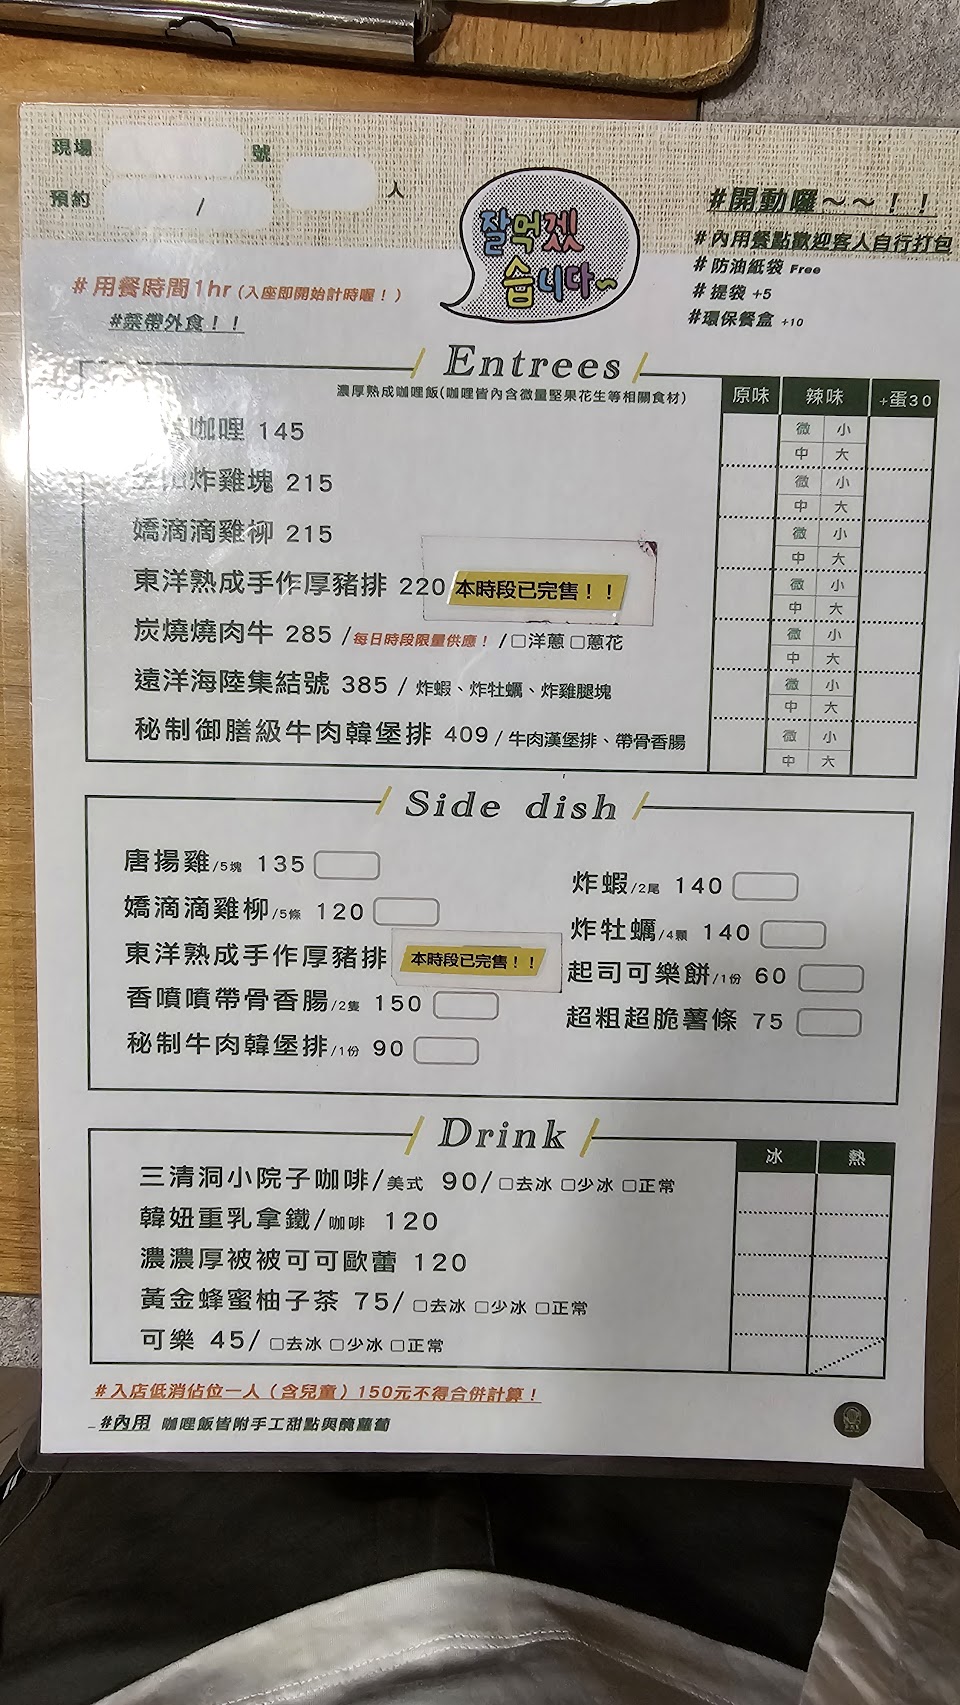 現場 號
預約 / 人
잘먹겠
습니다~
#開動囉～～！！
#內用餐點歡迎客人自行打包
#防油紙袋 Free
#提袋 +5
#環保餐盒 +10
#用餐時間1hr(入座即開始計時喔！)
#禁帶外食！！
Entrees
濃厚熟成咖哩飯(咖哩皆內含微量堅果花生等相關食材)
原味 辣味 +蛋30
咖哩 145
微 小
中 大
炸雞塊 215
微 小
中 大
嬌滴滴雞柳 215
微 小
中 大
東洋熟成手作厚豬排 220 本時段已完售！！
微 小
中 大
炭燒燒肉牛 285 /每日時段限量供應！/□洋蔥 □蔥花
微 小
中 大
遠洋海陸集結號 385 / 炸蝦、炸牡蠣、炸雞腿塊
微 小
中 大
秘制御膳級牛肉韓堡排 409 / 牛肉漢堡排、帶骨香腸
微 小
中 大
Side dish
唐揚雞/5塊 135
嬌滴滴雞柳/5條 120
東洋熟成手作厚豬排 本時段已完售！！
香噴噴帶骨香腸/2隻 150
秘制牛肉韓堡排/1份 90
炸蝦/2尾 140
炸牡蠣/4顆 140
起司可樂餅/1份 60
超粗超脆薯條 75
Drink
冰 熱
三清洞小院子咖啡/美式 90/ □去冰 □少冰 □正常
韓妞重乳拿鐵/咖啡 120
濃濃厚被被可可歐蕾 120
黃金蜂蜜柚子茶 75/ □去冰 □少冰 □正常
可樂 45/ □去冰 □少冰 □正常
#入店低消佔位一人（含兒童）150元不得合併計算！
#內用 咖哩飯皆附手工甜點與醃蘿蔔